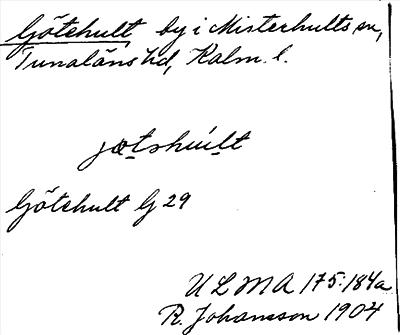 Götehult by i Misterhults sn,
Tunaläns hd, Kalm. l.
jætshúlt
Götehult G 29
ULMA 175:184a
R. Johansson 1904